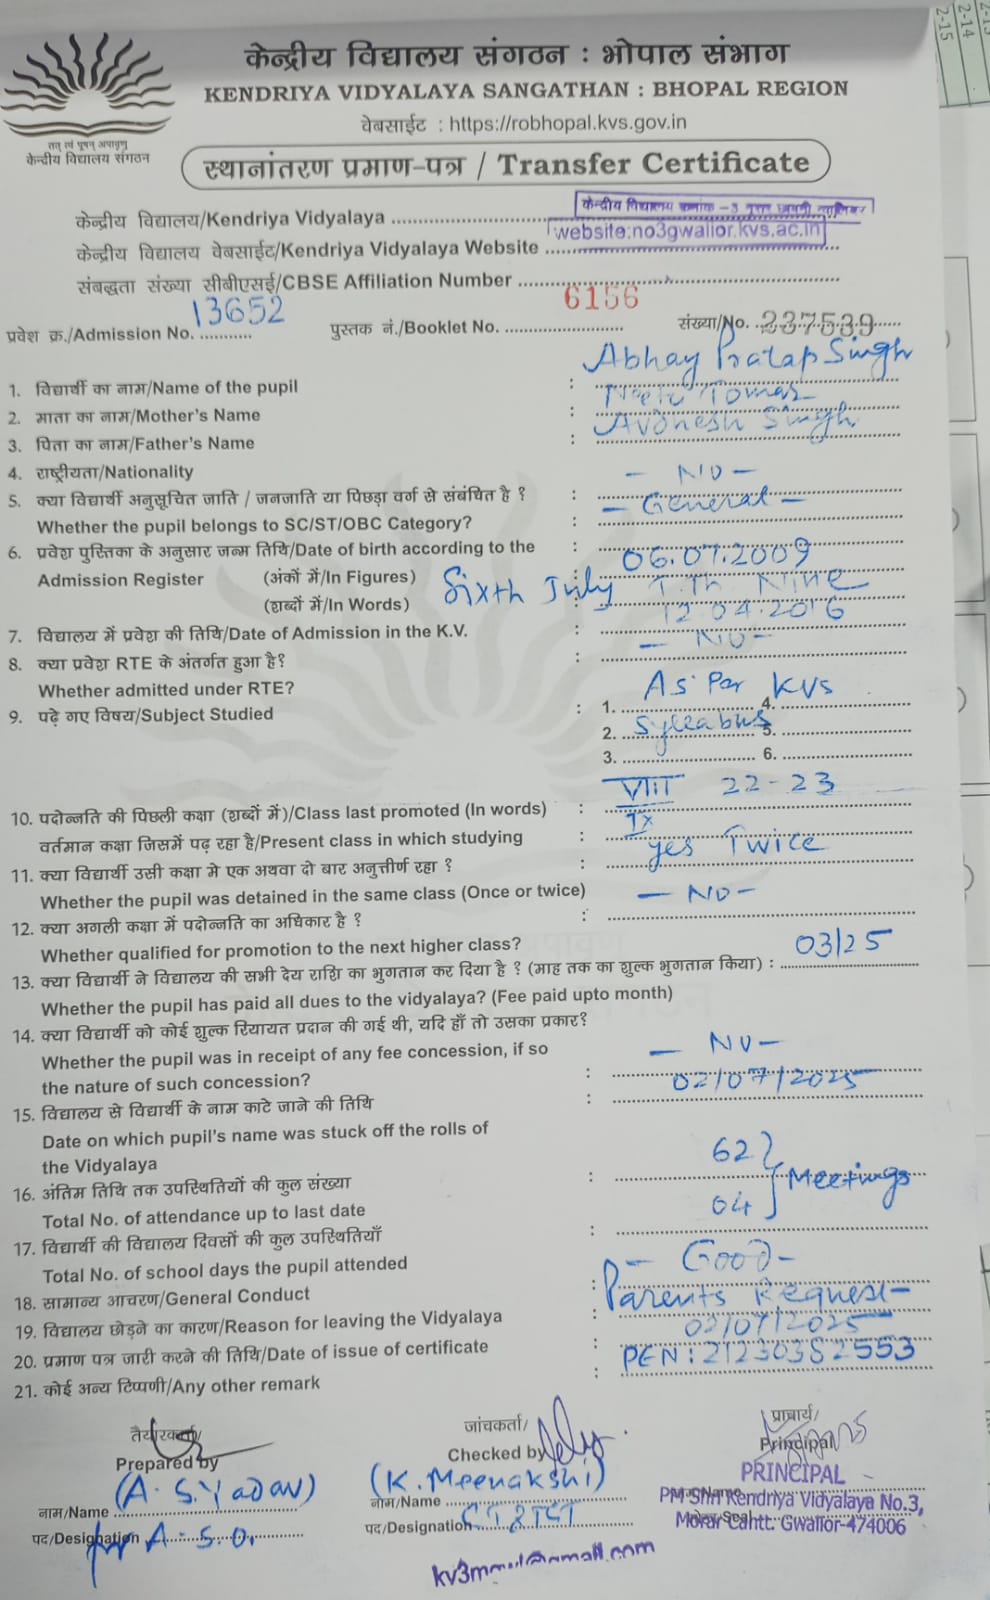 2-15
2-14
केन्द्रीय विद्यालय संगठन : भोपाल संभाग
KENDRIYA VIDYALAYA SANGATHAN : BHOPAL REGION
वेबसाईट : https://robhopal.kvs.gov.in
तत् त्वं पूषन् अपावृणु
केन्द्रीय विद्यालय संगठन
स्थानांतरण प्रमाण-पत्र / Transfer Certificate
केन्द्रीय विद्यालय/Kendriya Vidyalaya केन्द्रीय विद्यालय क्रमांक -3
केन्द्रीय विद्यालय वेबसाईट/Kendriya Vidyalaya Website website:no3gwalior.kvs.ac.in
संबद्धता संख्या सीबीएसई/CBSE Affiliation Number
प्रवेश क्र./Admission No. 13652 पुस्तक नं./Booklet No. 6156 संख्या/No. 237539
1. विद्यार्थी का नाम/Name of the pupil : Abhay Pratap Singh
2. माता का नाम/Mother's Name : Neetu Tomar
3. पिता का नाम/Father's Name : Avdhesh Singh
4. राष्ट्रीयता/Nationality
5. क्या विद्यार्थी अनुसूचित जाति / जनजाति या पिछड़ा वर्ग से संबंधित है ? : - NO -
Whether the pupil belongs to SC/ST/OBC Category? : - General -
6. प्रवेश पुस्तिका के अनुसार जन्म तिथि/Date of birth according to the :
Admission Register (अंकों में/In Figures) : 06.07.2009
(शब्दों में/In Words) Sixth July T.Th Nine
7. विद्यालय में प्रवेश की तिथि/Date of Admission in the K.V. : 12.04.2016
8. क्या प्रवेश RTE के अंतर्गत हुआ है? : - NO -
Whether admitted under RTE?
9. पढ़े गए विषय/Subject Studied : 1. As Per 4. KVS
2. Syllabus 5.
3. 6.
10. पदोन्नति की पिछली कक्षा (शब्दों में)/Class last promoted (In words) : VIII 22-23
वर्तमान कक्षा जिसमें पढ़ रहा है/Present class in which studying : IX
11. क्या विद्यार्थी उसी कक्षा मे एक अथवा दो बार अनुत्तीर्ण रहा ? : yes Twice
Whether the pupil was detained in the same class (Once or twice)
12. क्या अगली कक्षा में पदोन्नति का अधिकार है ? : - NO -
Whether qualified for promotion to the next higher class?
13. क्या विद्यार्थी ने विद्यालय की सभी देय राशि का भुगतान कर दिया है ? (माह तक का शुल्क भुगतान किया) : 03/25
Whether the pupil has paid all dues to the vidyalaya? (Fee paid upto month)
14. क्या विद्यार्थी को कोई शुल्क रियायत प्रदान की गई थी, यदि हाँ तो उसका प्रकार?
Whether the pupil was in receipt of any fee concession, if so
the nature of such concession? : - NO -
15. विद्यालय से विद्यार्थी के नाम काटे जाने की तिथि : 02/07/2025
Date on which pupil's name was stuck off the rolls of
the Vidyalaya
16. अंतिम तिथि तक उपस्थितियों की कुल संख्या : 62
Total No. of attendance up to last date Meetings
17. विद्यार्थी की विद्यालय दिवसों की कुल उपस्थितियाँ : 04
Total No. of school days the pupil attended
18. सामान्य आचरण/General Conduct : - Good -
19. विद्यालय छोड़ने का कारण/Reason for leaving the Vidyalaya : Parents Request
20. प्रमाण पत्र जारी करने की तिथि/Date of issue of certificate : 02/07/2025
21. कोई अन्य टिप्पणी/Any other remark : PEN: 21230382553
तैयारकर्ता/ जांचकर्ता/ प्राचार्य/
Prepared by Checked by Principal
(A. S. Yadav) (K. Meenakshi) PRINCIPAL
नाम/Name नाम/Name PM Shri Kendriya Vidyalaya No.3,
पद/Designation A.S.O. पद/Designation Morar Cantt. Gwalior-474006